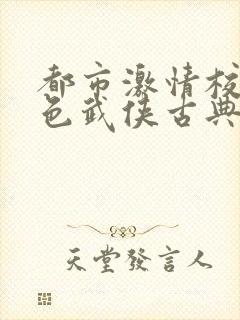 都市激情校
色武侠古典
天堂發言人